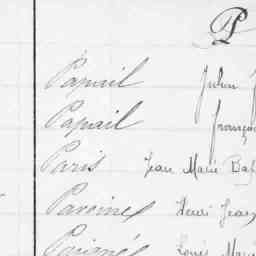 P
Papail Julien
Papail François
Paris Jean Marie Bap
Paroinel Henri Jean
Louis Marie